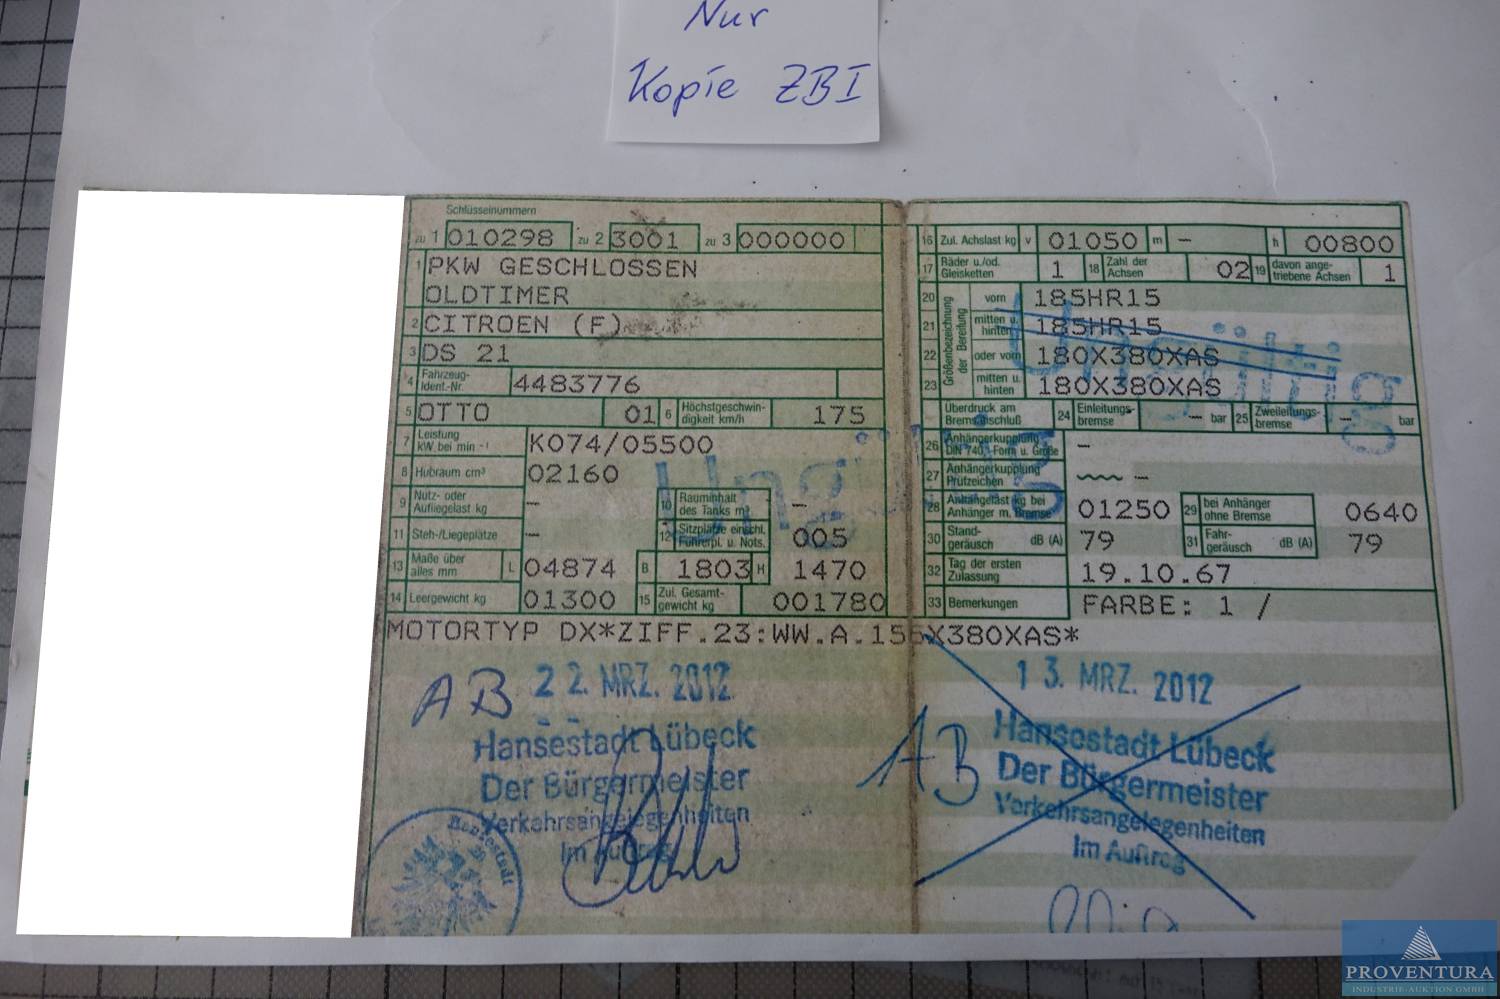 Nur
Kopie ZBI
Schlüsselnummern
zu 1 010298 zu 2 3001 zu 3 000000
1 PKW GESCHLOSSEN
OLDTIMER
2 CITROEN (F)
3 DS 21
4 Fahrzeug-Ident.-Nr. 4483776
5 OTTO 01 6 Höchstgeschwin-digkeit km/h 175
7 Leistung kW bei min -1 K074/05500
8 Hubraum cm³ 02160
9 Nutz- oder Aufliegelast kg – 10 Rauminhalt des Tanks m³ –
11 Steh-/Liegeplätze – 12 Sitzplätze einschl. Führerpl. u. Nots. 005
13 Maße über alles mm L 04874 B 1803 H 1470
14 Leergewicht kg 01300 15 Zul. Gesamt-gewicht kg 001780
16 Zul. Achslast kg v 01050 m – h 00800
17 Räder u./od. Gleisketten 1 18 Zahl der Achsen 02 19 davon ange-triebene Achsen 1
Größenbezeichnung der Bereifung
20 vorn 185HR15
21 mitten u. hinten 185HR15
22 oder vorn 180X380XAS
23 mitten u. hinten 180X380XAS
Überdruck am Bremsanschluß 24 Einleitungs-bremse – bar 25 Zweileitungs-bremse – bar
26 Anhängerkupplung DIN 740, Form u. Größe –
27 Anhängerkupplung Prüfzeichen –
28 Anhängelast kg bei Anhänger m. Bremse 01250 29 bei Anhänger ohne Bremse 0640
30 Stand-geräusch dB (A) 79 31 Fahr-geräusch dB (A) 79
32 Tag der ersten Zulassung 19.10.67
33 Bemerkungen FARBE: 1 /
MOTORTYP DX*ZIFF.23:WW.A.155X380XAS*
Ungültig
Ungültig
AB 22. MRZ. 2012
Hansestadt Lübeck
Der Bürgermeister
Verkehrsangelegenheiten
Im Auftrag
Hansestadt
13. MRZ. 2012
AB
Hansestadt Lübeck
Der Bürgermeister
Verkehrsangelegenheiten
Im Auftrag
PROVENTURA
INDUSTRIE-AUKTION GMBH